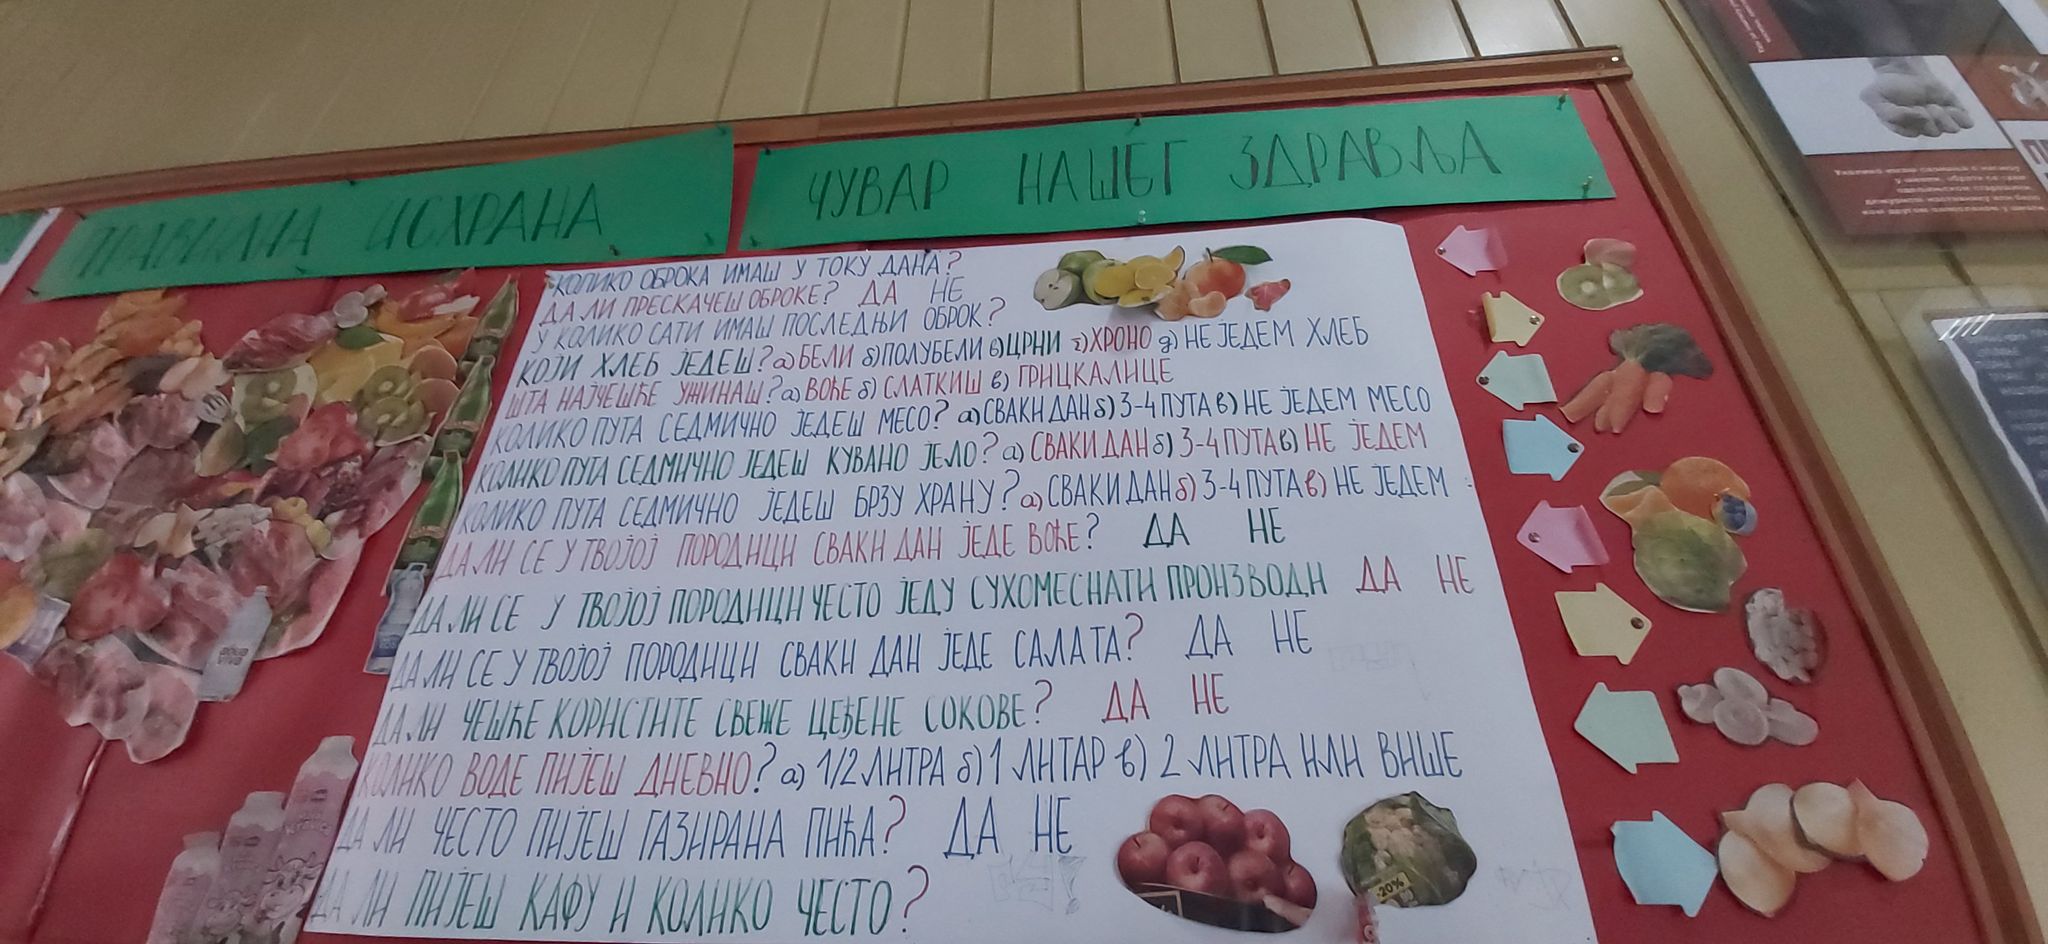 ПРАВИЛНА ИСХРАНА
ЧУВАР НАШЕГ ЗДРАВЉА
КОЛИКО ОБРОКА ИМАШ У ТОКУ ДАНА?
ДА ЛИ ПРЕСКАЧЕШ ОБРОКЕ? ДА НЕ
У КОЛИКО САТИ ИМАШ ПОСЛЕДЊИ ОБРОК?
КОЈИ ХЛЕБ ЈЕДЕШ? а) БЕЛИ б) ПОЛУБЕЛИ в) ЦРНИ г) ХРОНО д) НЕ ЈЕДЕМ ХЛЕБ
ШТА НАЈЧЕШЋЕ УЖИНАШ? а) ВОЋЕ б) СЛАТКИШ в) ГРИЦКАЛИЦЕ
КОЛИКО ПУТА СЕДМИЧНО ЈЕДЕШ МЕСО? а) СВАКИ ДАН б) 3-4 ПУТА в) НЕ ЈЕДЕМ МЕСО
КОЛИКО ПУТА СЕДМИЧНО ЈЕДЕШ КУВАНО ЈЕЛО? а) СВАКИ ДАН б) 3-4 ПУТА в) НЕ ЈЕДЕМ
КОЛИКО ПУТА СЕДМИЧНО ЈЕДЕШ БРЗУ ХРАНУ? а) СВАКИ ДАН б) 3-4 ПУТА в) НЕ ЈЕДЕМ
ДА ЛИ СЕ У ТВОЈОЈ ПОРОДИЦИ СВАКИ ДАН ЈЕДЕ ВОЋЕ? ДА НЕ
ДА ЛИ СЕ У ТВОЈОЈ ПОРОДИЦИ ЧЕСТО ЈЕДУ СУХОМЕСНАТИ ПРОИЗВОДИ ДА НЕ
ДА ЛИ СЕ У ТВОЈОЈ ПОРОДИЦИ СВАКИ ДАН ЈЕДЕ САЛАТА? ДА НЕ
ДА ЛИ ЧЕШЋЕ КОРИСТИТЕ СВЕЖЕ ЦЕЂЕНЕ СОКОВЕ? ДА НЕ
КОЛИКО ВОДЕ ПИЈЕШ ДНЕВНО? а) 1/2 ЛИТРА б) 1 ЛИТАР в) 2 ЛИТРА ИЛИ ВИШЕ
ДА ЛИ ЧЕСТО ПИЈЕШ ГАЗИРАНА ПИЋА? ДА НЕ
ДА ЛИ ПИЈЕШ КАФУ И КОЛИКО ЧЕСТО?
-20%
aqua
viva